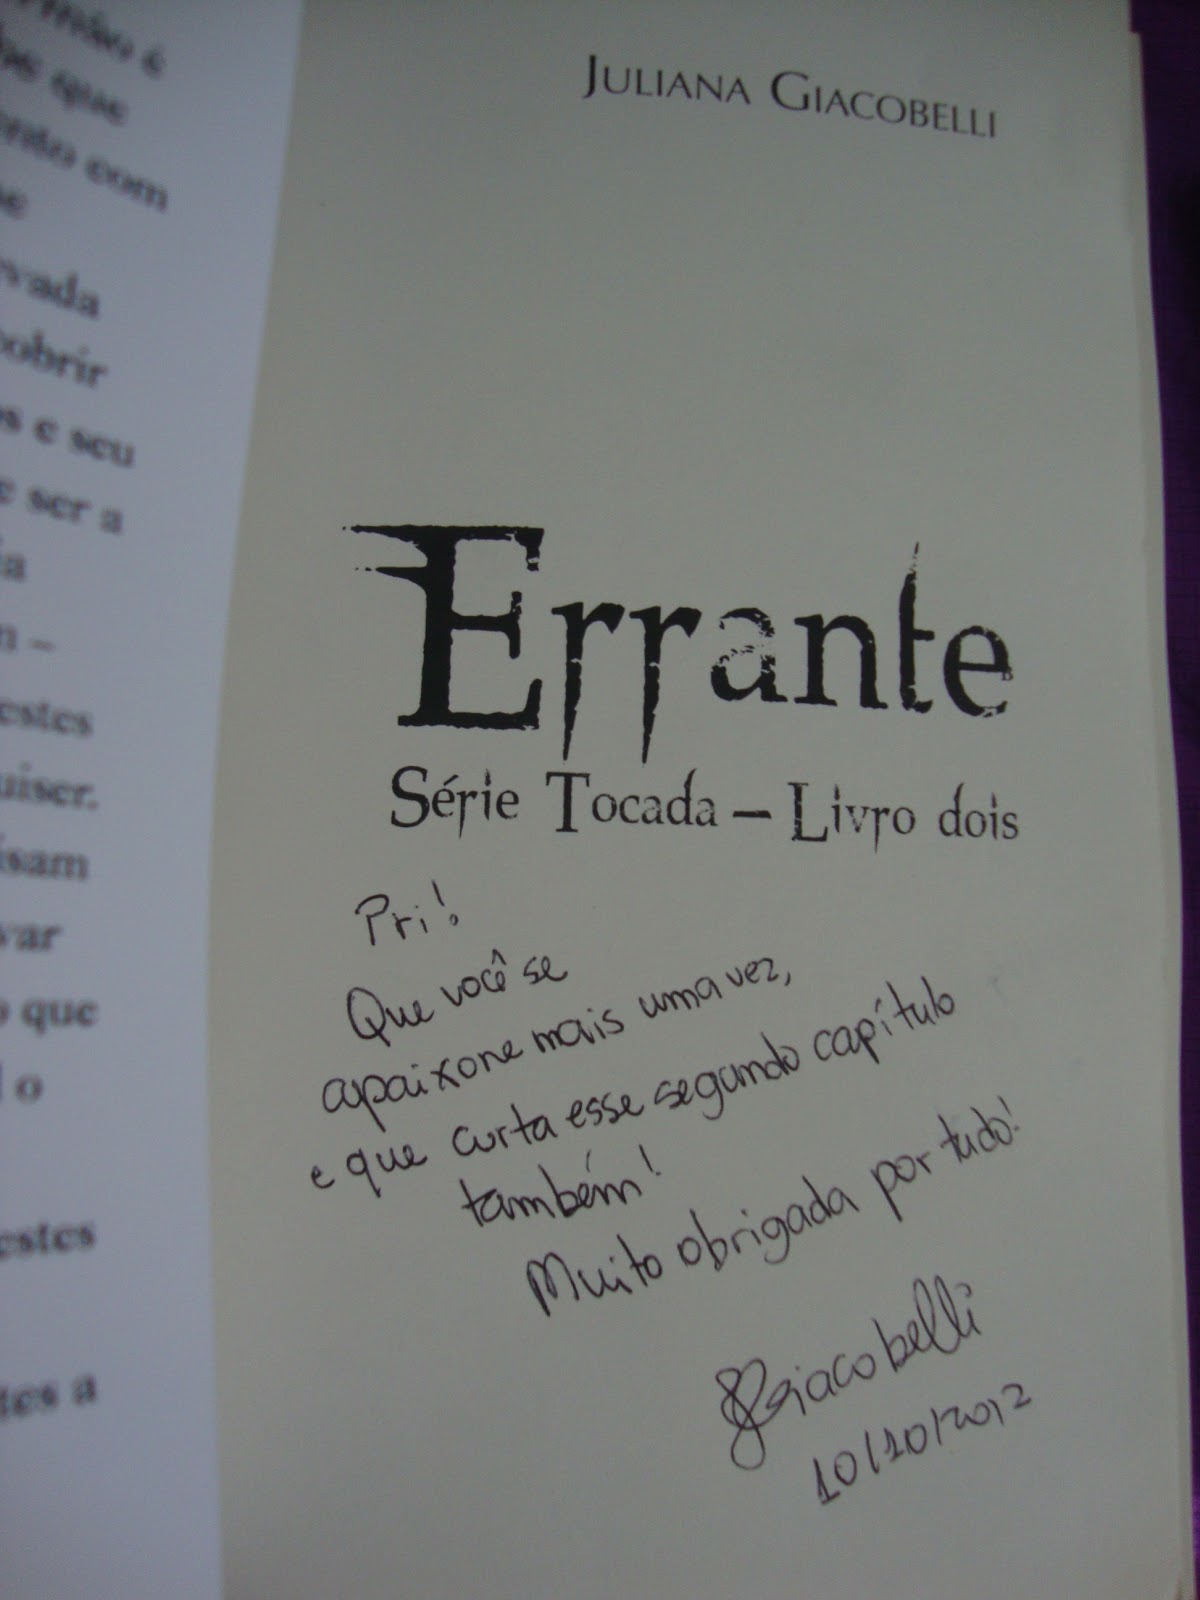 que
com
vada
cobrir
e seu
ser a
–
estes
uiser.
isam
var
que
o
estes
a
JULIANA GIACOBELLI
Errante
Série Tocada – Livro dois
Pri!
Que você se
apaixone mais uma vez,
e que curta esse segundo capítulo
também!
Muito obrigada por tudo!
JGiacobelli
10/10/2012